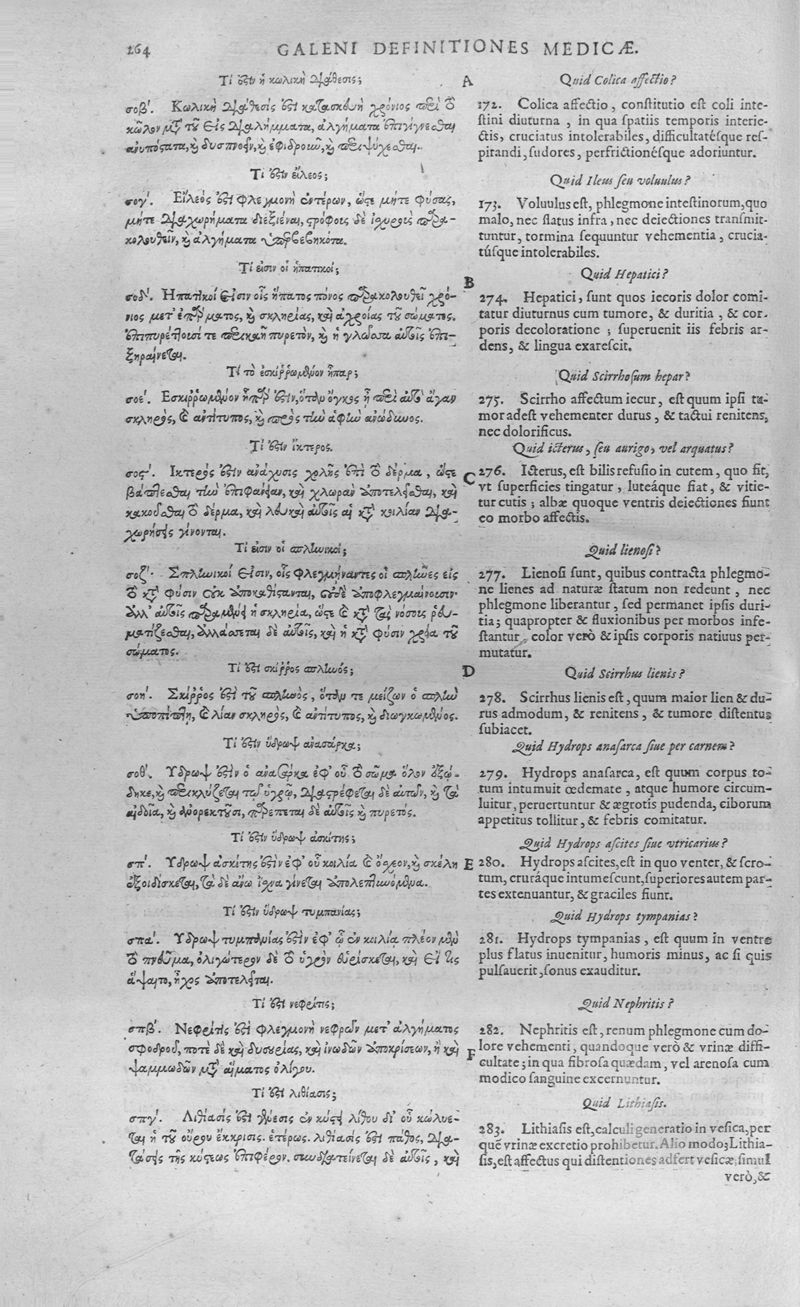 264 GALENI DEFINITIONES MEDICÆ.
Τί ἐστιν ἡ κωλικὴ διάθεσις;
σοβ΄. Κωλικὴ διάθεσίς ἐστι κατασκευὴ χρόνιος περὶ τὸ
κῶλον μετὰ τοῦ εἰς διαλήμματα, ἀλγήματα ἐπιγίγνεσθαι
ἀνυπόστατα, καὶ δυσπνοῆν, καὶ ἐφιδροῦν, καὶ περιψύχεσθαι.
Τί ἐστιν εἴλεος;
σογ΄. Εἴλεός ἐστι φλεγμονὴ ἐντέρων, ὥστε μήτε φύσας,
μήτε διαχωρήματα διεξιέναι, στρόφους δὲ ἰσχυροὺς παρα-
κολουθεῖν, καὶ ἀλγήματα ὑπερβεβηκότα.
Τί εἰσιν οἱ ἡπατικοί;
σοδ΄. Ἡπατικοί εἰσιν οἷς ἥπατος πόνος παρακολουθεῖ χρό-
νιος μετ' ἐπάρματος, καὶ σκληρίας, καὶ ἀχροίας τοῦ σώματος.
ἐπιπυρέττουσί τε περικαῆ πυρετὸν, καὶ ἡ γλῶσσα αὐτοῖς ἐπι-
ξηραίνεται.
Τί τὸ ἐσκιῤῥωμένον ἧπαρ;
σοε΄. Ἐσκιῤῥωμένον ἧπάρ ἐστιν, ὅταν ὄγκος ᾖ περὶ αὐτὸ ἄγαν
σκληρὸς, καὶ ἀντίτυπος, καὶ πρὸς τὴν ἁφὴν ἀνώδυνος.
Τί ἐστιν ἴκτερος.
σος΄. Ἴκτερός ἐστιν ἀνάχυσις χολῆς ἐπὶ τὸ δέρμα, ὥστε
βάπτεσθαι τὴν ἐπιφάνειαν, καὶ χλωρὰν ἀποτελεῖσθαι, καὶ
κακοῦσθαι τὸ δέρμα, καὶ λευκαὶ αὐτοῖς αἱ κατὰ κοιλίαν δια-
χωρήσεις γίνονται.
Τί εἰσιν οἱ σπληνικοί;
σοζ΄. Σπληνικοί εἰσιν, οἷς φλεγμήναντες οἱ σπλῆνες εἰς
τὸ κατὰ φύσιν οὐκ ἀποκαθίστανται, οὐδὲ ἀποφλεγμαίνουσιν
ἀλλ' αὐτοῖς παραμένει ἡ σκληρία, ὥστε καὶ κατὰ τὰς νόσους ῥευ-
ματίζεσθαι, ἀλλάσσεται δὲ αὐτοῖς, καὶ ἡ κατὰ φύσιν χρόα τοῦ
σώματος.
Τί ἐστι σκίῤῥος σπληνός;
σοη΄. Σκίῤῥος ἐστὶ τοῦ σπληνὸς, ὅταν τε μείζων ὁ σπλὴν
ὑποπίπτῃ, καὶ λίαν σκληρὸς, καὶ ἀντίτυπος, καὶ διωγκωμένος.
Τί ἐστιν ὕδρωψ ἀνασάρκα;
σοθ΄. Ὕδρωψ ἐστὶν ὁ ἀνασάρκα ἐφ' οὗ τὸ σῶμα ὅλον ἐξῴ-
δηκε, καὶ περικλύζεται τῷ ὑγρῷ, διαστρέφεται δὲ αὐτῶν, καὶ τὰ
αἰδοῖα, καὶ ἀνορεκτοῦσι, παρέπεται δὲ αὐτοῖς καὶ πυρετός.
Τί ἐστιν ὕδρωψ ἀσκίτης;
σπ΄. Ὕδρωψ ἀσκίτης ἐστὶν ἐφ' οὗ κοιλία καὶ ὄσχεον, καὶ σκέλη
ἐξοιδίσκεται, τὰ δὲ ἄνω ἰσχνὰ γίνεται ἀπολεπτυνόμενα.
Τί ἐστιν ὕδρωψ τυμπανίας;
σπα΄. Ὕδρωψ τυμπανίας ἐστὶν ἐφ' ᾧ ἐν κοιλίᾳ πλέον μὲν
τὸ πνεῦμα, ὀλιγώτερον δὲ τὸ ὑγρὸν εὑρίσκεται, καὶ εἴ τις
ἅψαιτο, ἦχος ἀποτελεῖται.
Τί ἐστι νεφρῖτις;
σπβ΄. Νεφρῖτίς ἐστι φλεγμονὴ νεφρῶν μετ' ἀλγήματος
σφοδροῦ, ποτὲ δὲ καὶ δυσουρίας, καὶ ἰνωδῶν ἀποκρίσεων, ἢ καὶ
ψαμμωδῶν μετὰ αἵματος ὀλίγου.
Τί ἐστι λιθίασις;
σπγ΄. Λιθίασίς ἐστι γένεσις ἐν κύστει λίθου δι' οὗ κωλύε-
ται ἡ τοῦ οὔρου ἔκκρισις. ἑτέρως. λιθίασίς ἐστι πάθος, δια-
τάσεις τῆς κύστεως ἐπιφέρον. συνδιατείνεται δὲ αὐτοῖς, καὶ
A
B
C
D
E
F
Quid Colica affectio?
172. Colica affectio, conſtitutio eſt coli inte-
ſtini diuturna, in qua ſpatiis temporis interie-
ctis, cruciatus intolerabiles, difficultatéſque reſ-
pirandi, ſudores, perfrictionéſque adoriuntur.
Quid Ileus ſeu voluulus?
173. Voluulus eſt, phlegmone inteſtinorum, quo
malo, nec flatus infra, nec deiectiones tranſmit-
tuntur, tormina ſequuntur vehementia, crucia-
túſque intolerabiles.
Quid Hepatici?
274. Hepatici, ſunt quos iecoris dolor comi-
tatur diuturnus cum tumore, & duritia, & cor-
poris decoloratione; ſuperuenit iis febris ar-
dens, & lingua exareſcit.
Quid Scirrhoſum hepar?
275. Scirrho affectum iecur, eſt quum ipſi tu-
mor adeſt vehementer durus, & tactui renitens,
nec dolorificus.
Quid icterus, ſeu aurigo, vel arquatus?
276. Icterus, eſt bilis refuſio in cutem, quo fit,
vt ſuperficies tingatur, luteáque fiat, & vitie-
tur cutis; albæ quoque ventris deiectiones fiunt
eo morbo affectis.
Quid lienoſi?
277. Lienoſi ſunt, quibus contracta phlegmo-
ne lienes ad naturæ ſtatum non redeunt, nec
phlegmone liberantur, ſed permanet ipſis duri-
tia; quapropter & fluxionibus per morbos infe-
ſtantur, color verò & ipſis corporis natiuus per-
mutatur.
Quid Scirrhus lienis?
278. Scirrhus lienis eſt, quum maior lien & du-
rus admodum, & renitens, & tumore diſtentus
ſubiacet.
Quid Hydrops anaſarca ſiue per carnem?
279. Hydrops anaſarca, eſt quum corpus to-
tum intumuit œdemate, atque humore circum-
luitur, peruertuntur & ægrotis pudenda, ciborum
appetitus tollitur, & febris comitatur.
Quid Hydrops aſcites ſiue vtricarius?
280. Hydrops aſcites, eſt in quo venter, & ſcro-
tum, cruráque intumeſcunt, ſuperiores autem par-
tes extenuantur, & graciles fiunt.
Quid Hydrops tympanias?
281. Hydrops tympanias, eſt quum in ventre
plus flatus inuenitur, humoris minus, ac ſi quis
pulſauerit, ſonus exauditur.
Quid Nephritis?
282. Nephritis eſt, renum phlegmone cum do-
lore vehementi, quandoque verò & vrinæ diffi-
cultate; in qua fibroſa quædam, vel arenoſa cum
modico ſanguine excernuntur.
Quid Lithiaſis.
283. Lithiaſis eſt, calculi generatio in veſica, per
quē vrinæ excretio prohibetur. Alio modo; Lithia-
ſis, eſt affectus qui diſtentiones adfert veſicæ, ſimul
verò, &